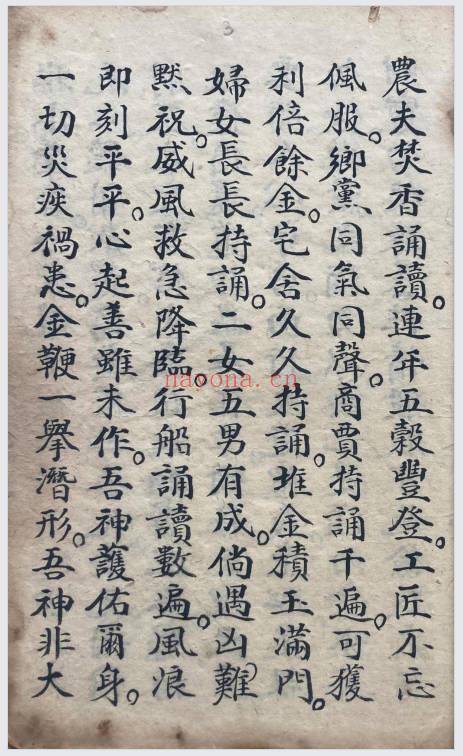 3
農夫焚香誦讀。連年五穀豐登。工匠不忘
佩服。鄉黨同氣同聲。商賈持誦千遍。可獲
利倍餘金。宅舍久久持誦。堆金積玉滿門。
婦女長長持誦。二女五男有成。倘遇凶難
黙祝。威風救急降臨。行船誦讀數遍。風浪
即刻平平。心起善雖未作。吾神護佑爾身。
一切災疾禍患。金鞭一舉潛形。吾神非大
nayona.cn